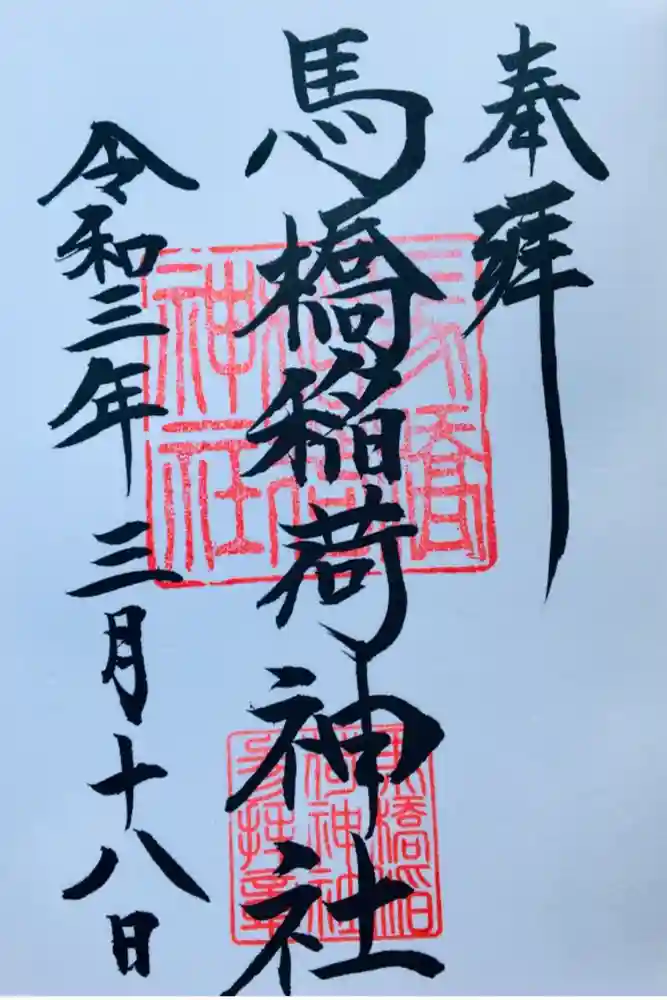 奉拝
馬橋稲荷神社
令和三年三月十八日
馬橋
稲荷
神社
馬橋稲
荷神社
参拝章